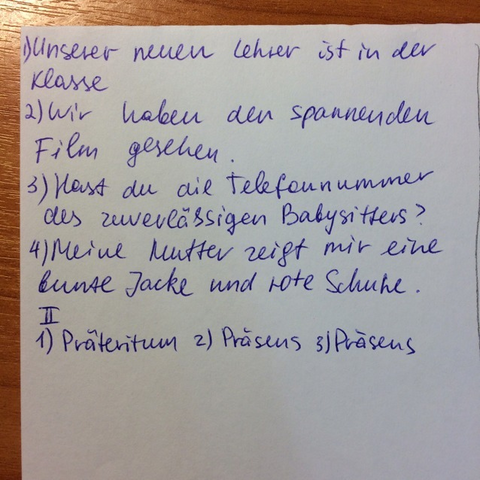 1) Unserer neuen Lehrer ist in der
Klasse
2) Wir haben den spannenden
Film gesehen.
3) Hast du die Telefonnummer
des zuverlässigen Babysitters?
4) Meine Mutter zeigt mir eine
bunte Jacke und rote Schuhe.
II
1) Präteritum 2) Präsens 3) Präsens